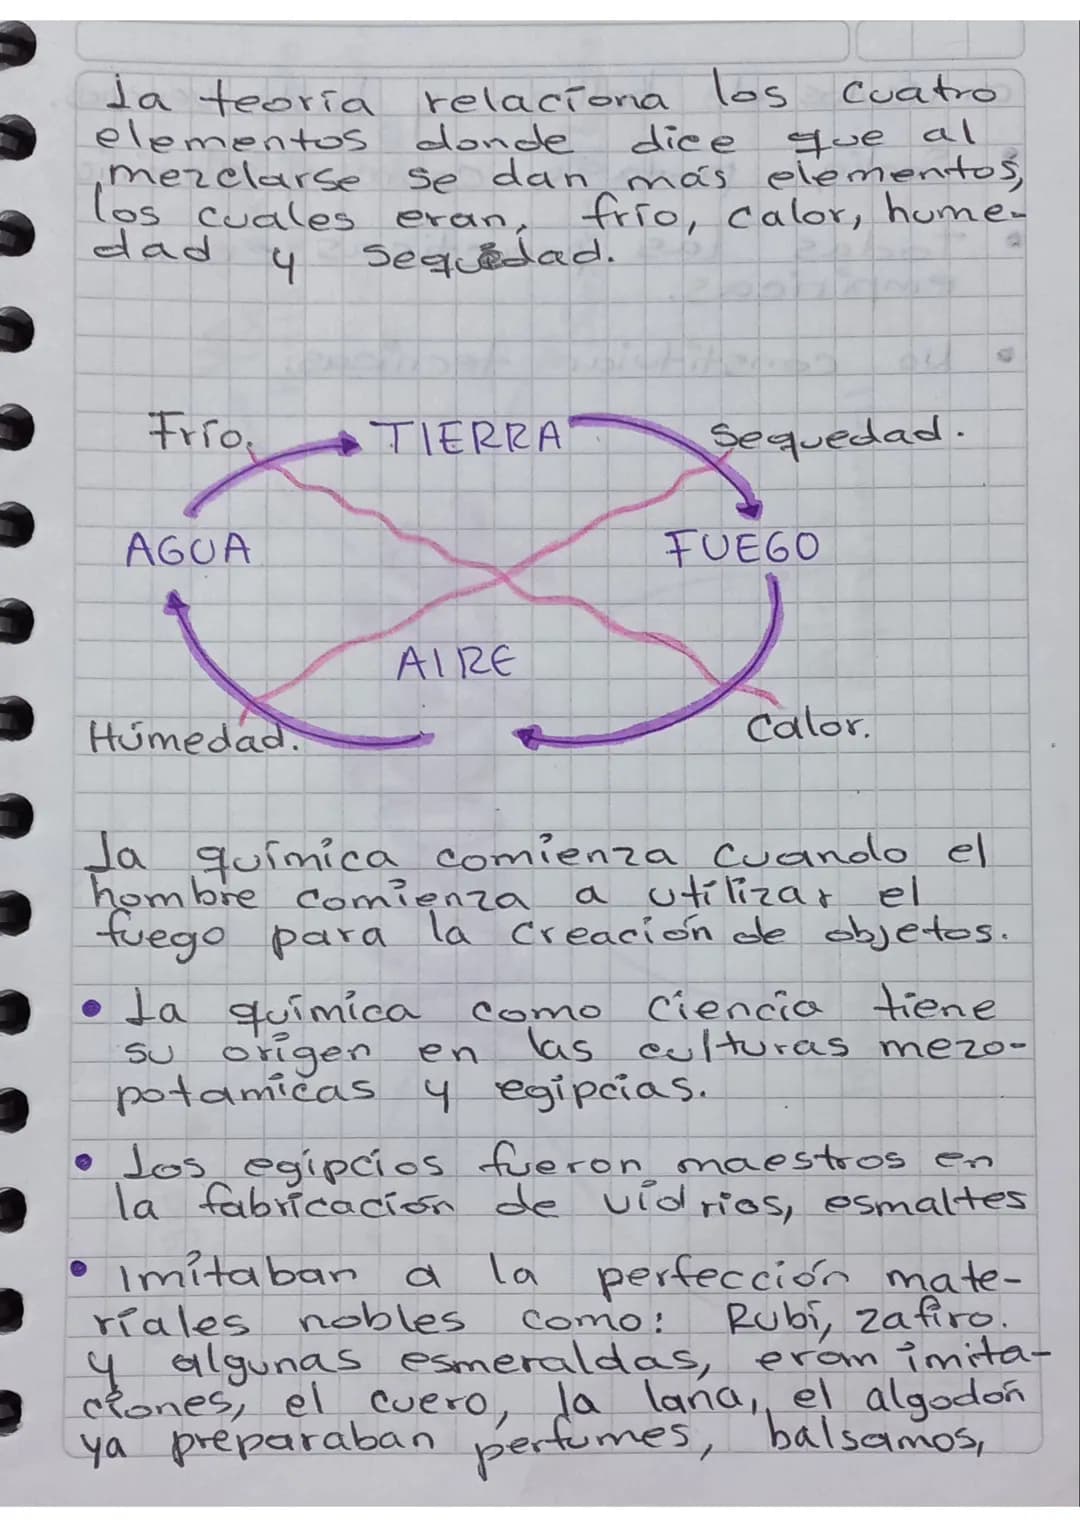 La teoría relaciona los cuatro
elementos donde dice que al
mezclarse se dan más elementos,
los cuales eran, frío, calor, hume-
dad y sequedad.
Frío. TIERRA Sequedad.
AGUA FUEGO
AIRE
Húmedad. Calor.
La química comienza cuando el
hombre comienza a utilizar el
fuego para la creación de objetos.
• La química como ciencia tiene
su origen en las culturas mezo-
potamicas y egipcias.
• Los egipcios fueron maestros en
la fabricación de vidrios, esmaltes
• Imitaban a la perfección mate-
riales nobles como: Rubí, zafiro.
y algunas esmeraldas, eran imita-
ciones, el cuero, la lana, el algodón
ya preparaban perfumes, balsamos,